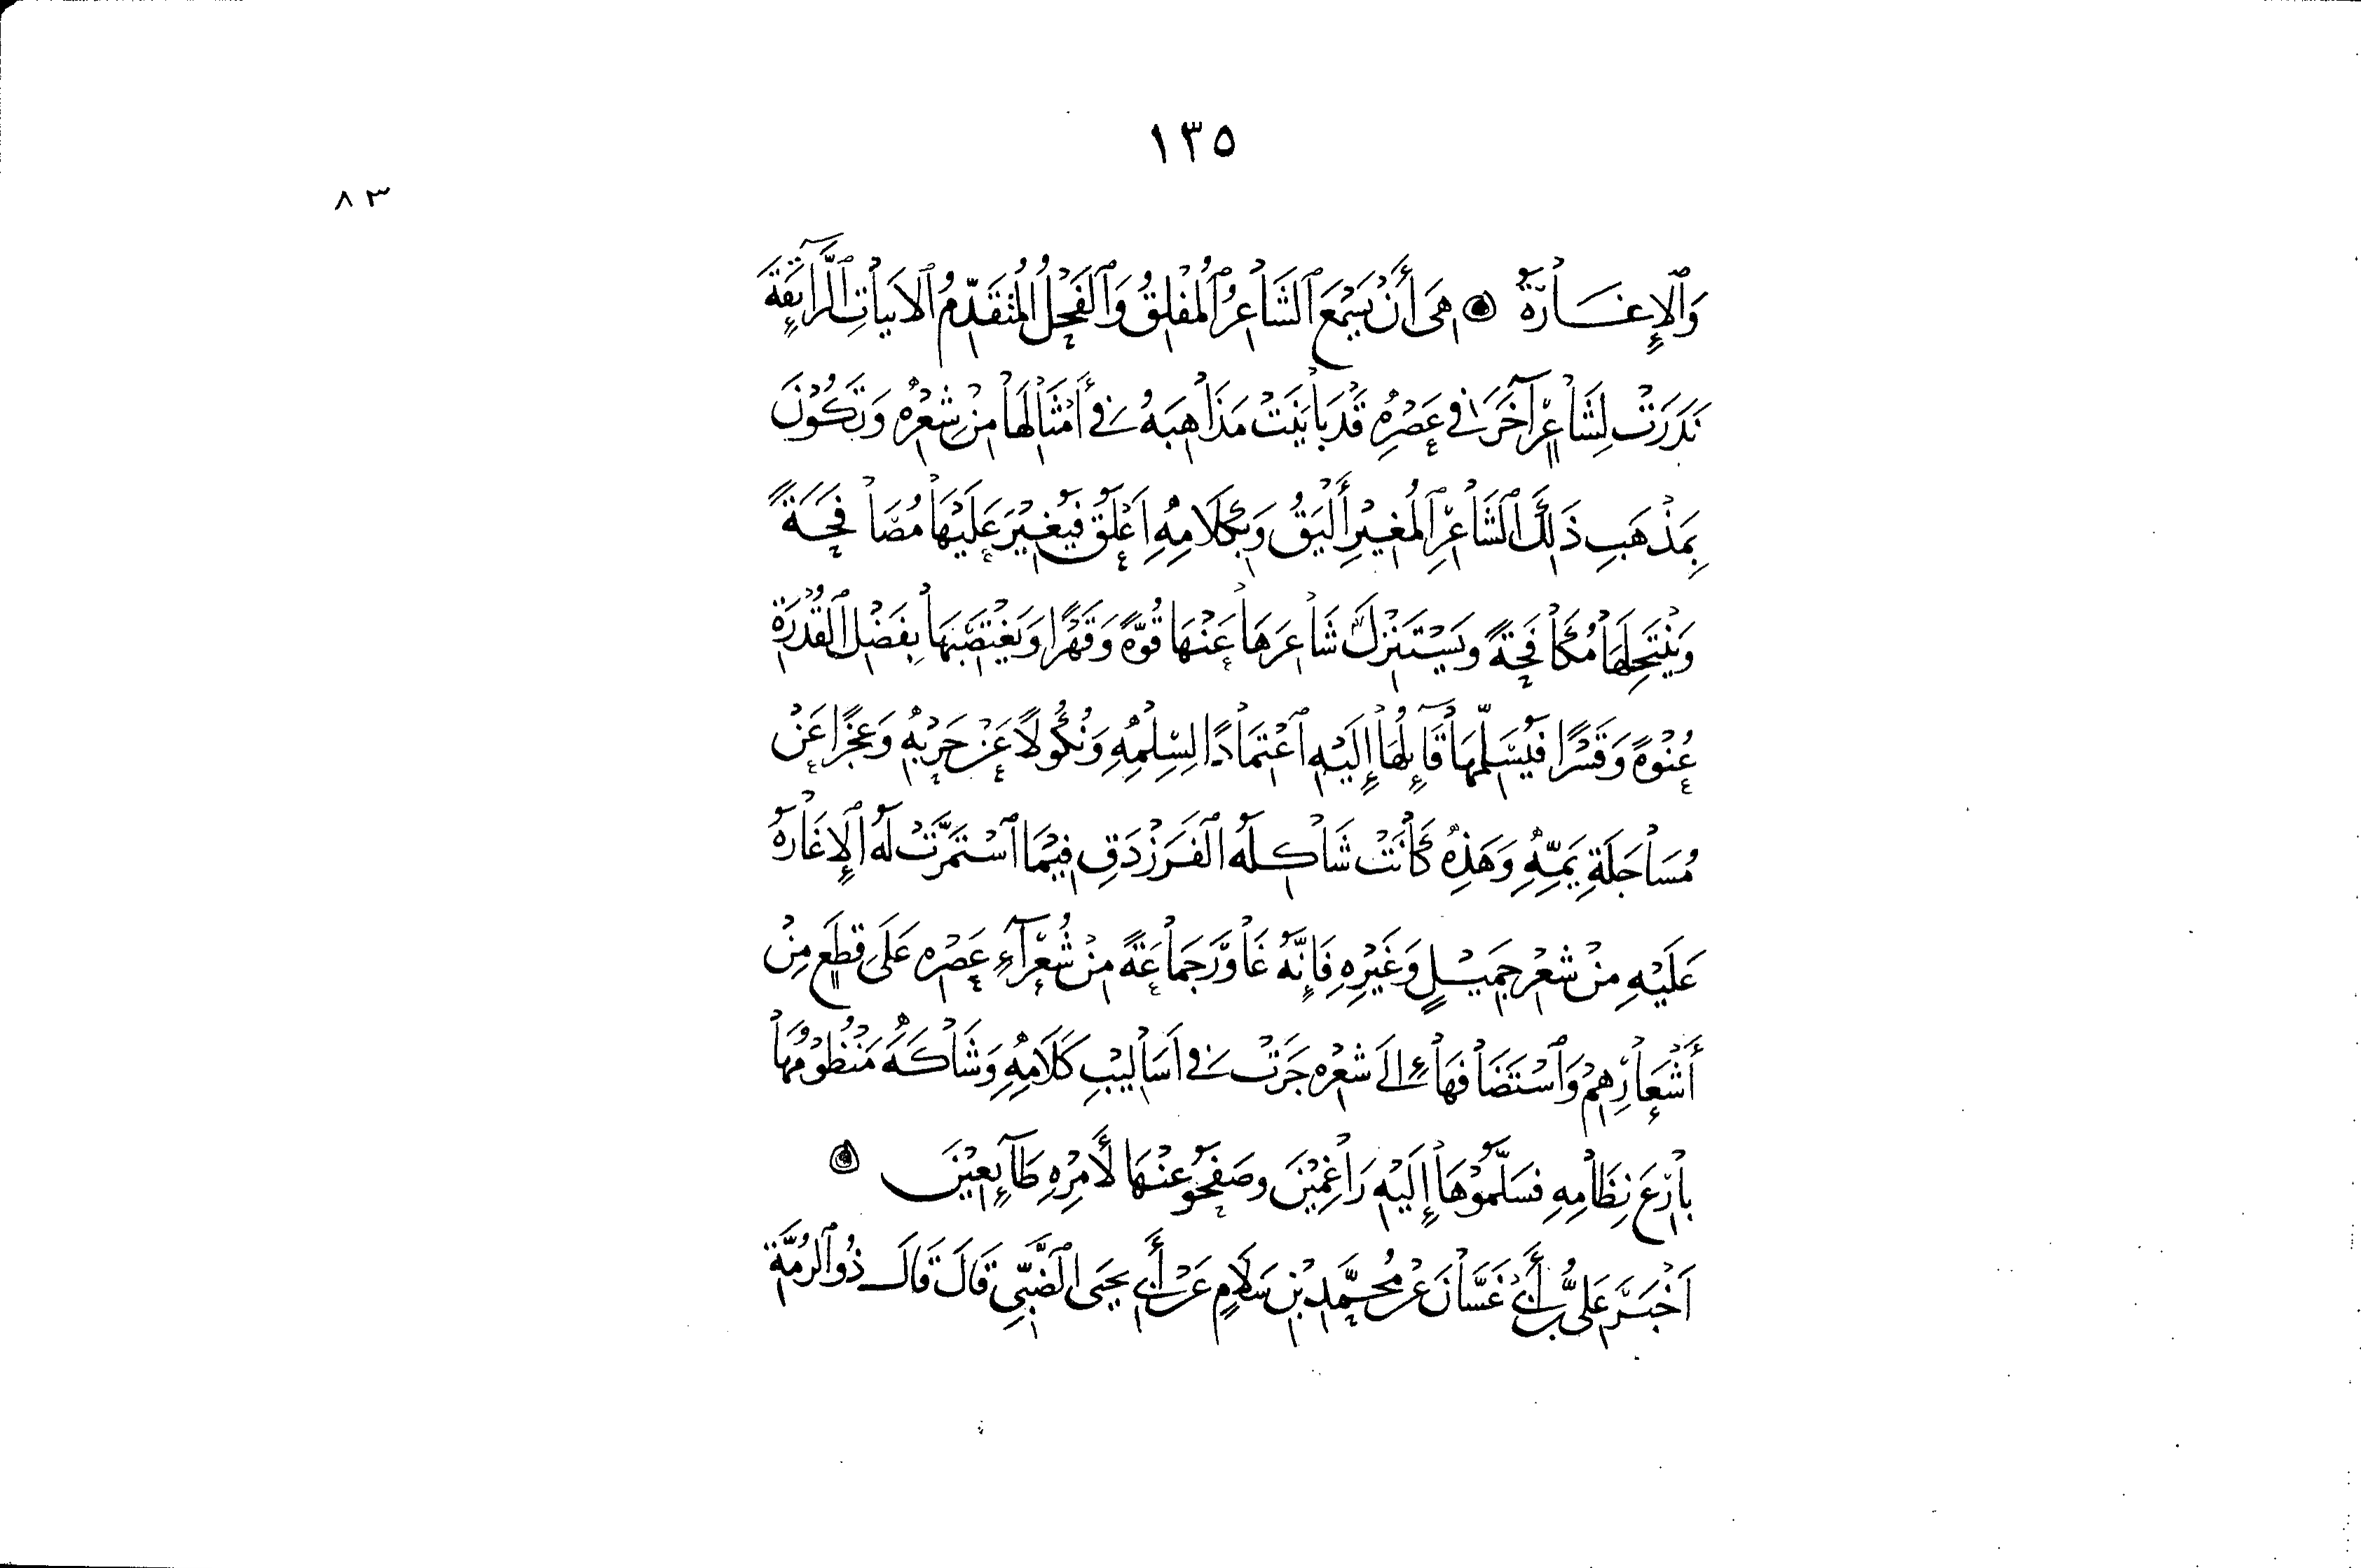 ١٣٥
٨٣
وَٱلْإِغَارَةُ ۞ هِىَ أَنْ يَسْمَعَ ٱلشَّاعِرُ ٱلْمُفْلِقُ وَٱلْفَحْلُ ٱلْمُتَقَدِّمُ ٱلْابَيَاتِ ٱلرَّآئِقَةَ
نَدَرَتْ لِشَاعِرٍ آخَرَ فِى عَصْرِهِ قَدْ بَايَنَتْ مَذَاهِبَهُ فِى أَمْثَالِهَا مِنْ شِعْرِهِ وَتَكُوْنَ
بِمَذْهَبِ ذَلِكَ ٱلشَّاعِرِ ٱلْمُغِيْرِ أَلْيَقُ وَبِكَلَامِهِ اَعْلَقُ فَيُغِيْرَ عَلَيْهَا مُصَافَحَةً
وَيَنْتَحِلَهَا مُكَافَحَةً وَيَسْتَنْزِلَ شَاعِرَهَا عَنْهَا قُوَّةً وَقَهْرًا وَيَغْتَصِبَهَا بِفَضْلِ ٱلْقُدْرَةِ
عُنْوَةً وَقَسْرًا فَيُسَلِّمَهَا قَآئِلُهَا إِلَيْهِ ٱعْتِمَادًا لِسِلْمِهِ وَنُكُولًا عَنْ حَرْبِهِ وَعَجْزًا عَنْ
مُسَاجَلَةِ يَمِّهِ وَهَذِهِ كَانَتْ شَاكِلَهُ ٱلْفَرَزْدَقِ فِيْمَا ٱسْتَمَرَّتْ لَهُ ٱلْإِغَارَهُ
عَلَيْهِ مِنْ شِعْرِ جَمِيْلٍ وَغَيْرِهِ فَإِنَّهُ غَاوَرَ جَمَاعَةً مِنْ شُعَرَآءِ عَصْرِهِ عَلَى قِطَعٍ مِنْ
أَشْعَارِهِمْ وَٱسْتَضَافَهَا إِلَى شِعْرِهِ جَرَتْ فِى اَسَالِيْبِ كَلَامِهِ وَشَاكَهَ مَنْظُوْمُهَا
بَارِعَ نِظَامِهِ فَسَلَّمُوْهَا إِلَيْهِ رَاغِمِيْنَ وصَفَحُوْ عَنْهَا لأَمْرِهِ طَآئِعِيْنَ ۞
اَخْبَرَ عَلىُّ بْنُ أَبِى غَسَّانَ عَنْ مُحَمَّدِ بْنِ سَلَامٍ عَنْ أَبِى يَحْيَى ٱلضَّبِّىِّ قَالَ قَالَ ذُوْ ٱلرُّمَّةِ